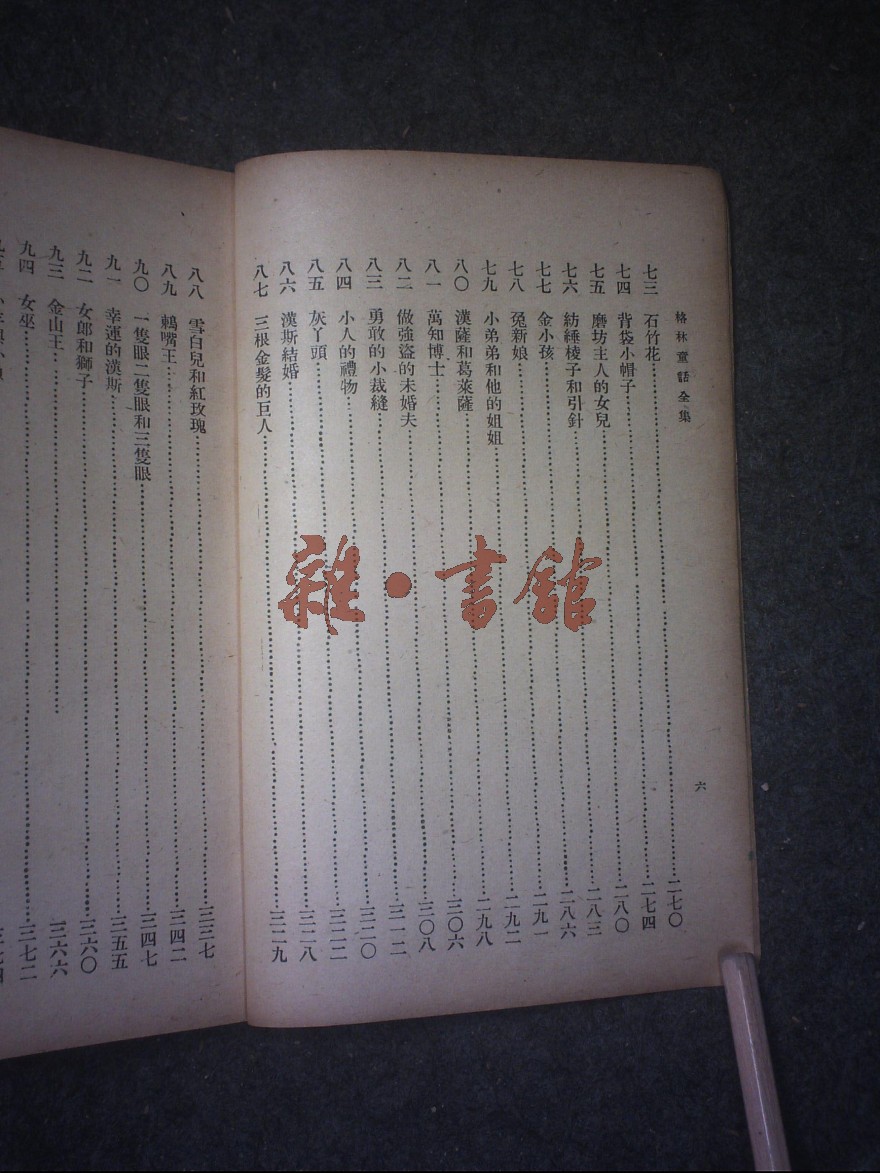 格林童話全集
七三 石竹花……二七〇
七四 背袋小帽子……二七四
七五 磨坊主人的女兒……二八〇
七六 紡綞棱子和引針……二八三
七七 金小孩……二八六
七八 兔新娘……二九一
七九 小弟弟和他的姐姐……二九二
八〇 漢薩和葛萊薩……二九八
八一 萬知博士……三〇六
八二 做強盜的未婚夫……三〇八
八三 勇敢的小裁縫……三一二
八四 小人的禮物……三二〇
八五 灰丫頭……三二二
八六 漢斯結婚……三二八
八七 三根金髮的巨人……三二九
六
八八 雪白兒和紅玫瑰……三三七
八九 鶇嘴王……三四二
九〇 一隻眼二隻眼和三隻眼……三四七
九一 幸運的漢斯……三五五
九二 女郎和獅子……三六〇
九三 金山王……三六六
九四 女巫……三七二
雜·書館